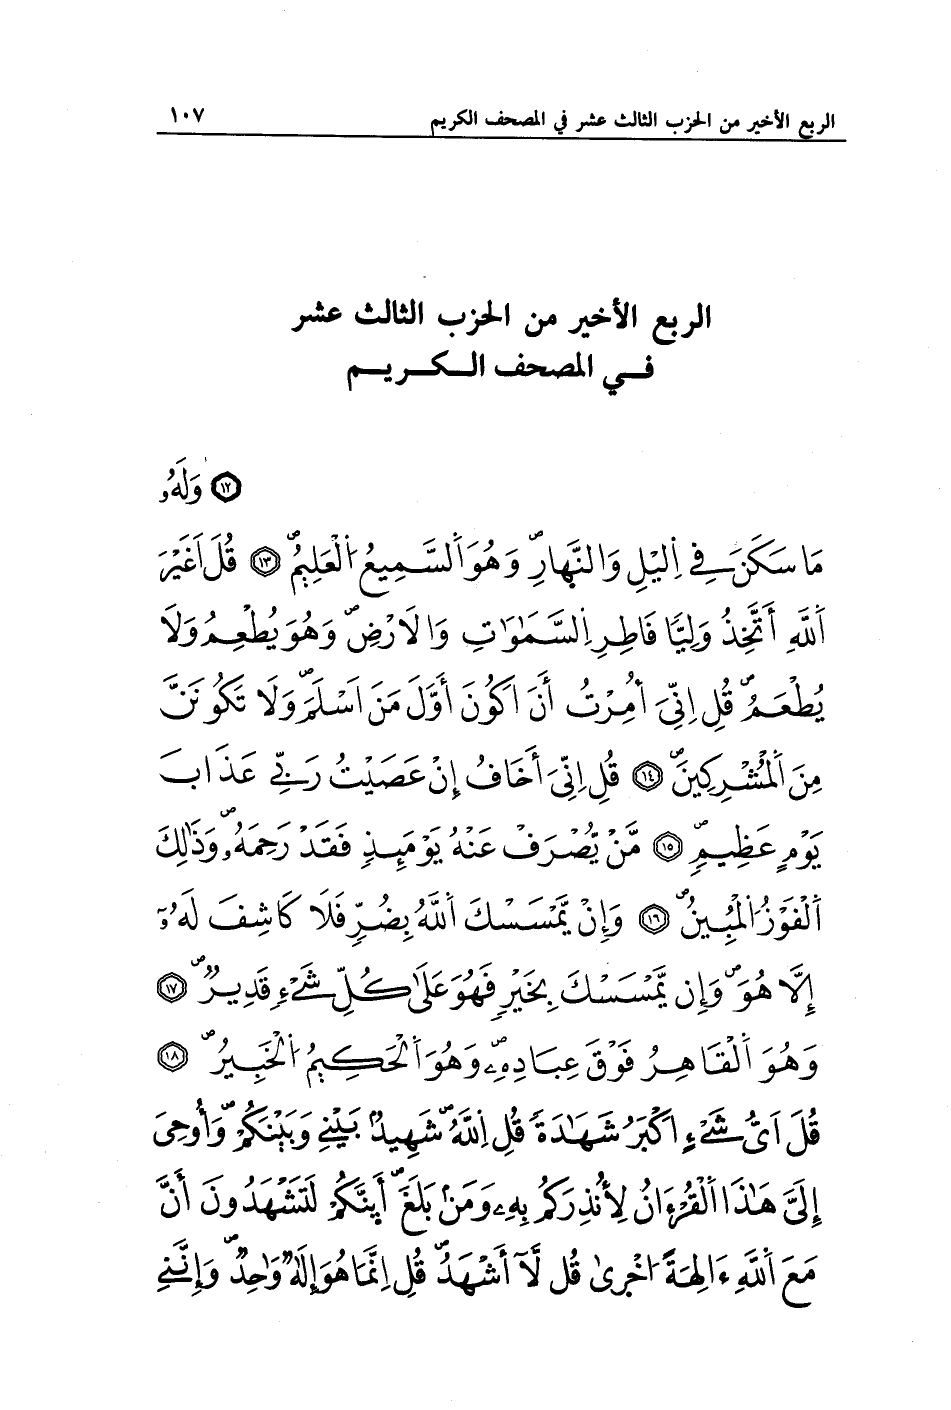 الربع الأخير من الحزب الثالث عشر في المصحف الكريم ١٠٧
الربع الأخير من الحزب الثالث عشر
في المصحف الكريم
⑫ وَلَهُۥ
مَا سَكَنَ فِے اِ۬ليْلِ وَالنَّهارِۖ وَهُوَ اَ۬لسَّمِيعُ اُ۬لْعَلِيمُۖ ⑬ قُلَ اَغَيْرَ
اَ۬للَّهِ أَتَّخِذُ وَلِيّاٗ فَاطِرِ اِ۬لسَّمَٰوَٰتِ وَالَارْضِۖ وَهُوَ يُطْعِمُ وَلَا
يُطْعَمُۖ قُلِ اِنِّيَ أُمِرْتُ أَنَ اَكُونَ أَوَّلَ مَنَ اَسْلَمَۖ وَلَا تَكُونَنَّ
مِنَ اَ۬لْمُشْرِكِينَۖ ⑭ قُلِ اِنِّيَ أَخَافُ إِنْ عَصَيْتُ رَبِّے عَذَابَ
يَوْمٍ عَظِيمٖۖ ⑮ مَّنْ يُّصْرَفْ عَنْهُ يَوْمَئِذٖ فَقَدْ رَحِمَهُۥۖ وَذَٰلِكَ
اَ۬لْفَوْزُ اُ۬لْمُبِينُۖ ⑯ وَإِنْ يَّمْسَسْكَ اَ۬للَّهُ بِضُرّٖ فَلَا كَاشِفَ لَهُۥٓ
إِلَّا هُوَۖ وَإِن يَّمْسَسْكَ بِخَيْرٖ فَهُوَ عَلَىٰ كُلِّ شَےْءٖ قَدِيرٌۖ ⑰
وَهُوَ اَ۬لْقَاهِرُ فَوْقَ عِبَادِهِۦۖ وَهُوَ اَ۬لْحَكِيمُ اُ۬لْخَبِيرُۖ ⑱
قُلَ اَيُّ شَےْءٍ اَكْبَرُ شَهَٰدَةٗ قُلِ اِ۬للَّهُۖ شَهِيدُۢ بَيْنِے وَبَيْنَكُمْۖ وَأُوحِيَ
إِلَيَّ هَٰذَا اَ۬لْقُرْءَانُ لِأُنذِرَكُم بِهِۦ وَمَنۢ بَلَغَۖ أَينَّكُمْ لَتَشْهَدُونَ أَنَّ
مَعَ اَ۬للَّهِ ءَالِهَةً اُخْرَىٰ قُل لَّآ أَشْهَدُۖ قُلِ اِنَّمَا هُوَ إِلَٰهٞ وَٰحِدٞۖ وَإِنَّنِے